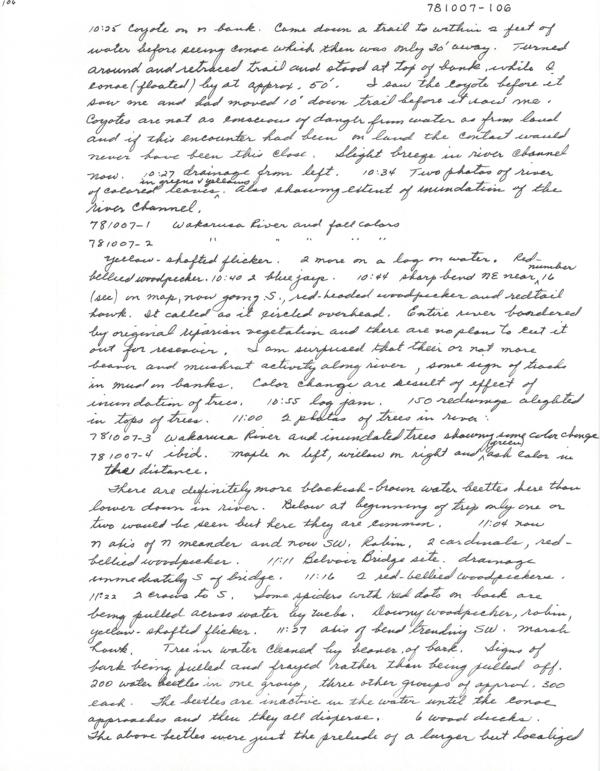 106
781007-106
10:25 Coyote on n bank. Came down a trail to within 2 feet of
water before seeing canoe which then was only 30' away. Turned
around and retraced trail and stood at top of bank, while I
canoe (floated) by at approx. 50'. I saw the coyote before it
saw me and had moved 10' down trail before it saw me.
Coyotes are not as conscious of danger from water as from land
and if this encounter had been on land the contact would
never have been this close. Slight breeze in river channel
now. 10:27 drainage from left. 10:34 Two photos of river
in greens & yellows
of colored leaves. Also showing extent of inundation of the
river channel.
781007-1 Wakarusa River and fall colors
781007-2 " " " " "
Yellow-shafted flicker. 2 more on a log on water. Red-
bellied woodpecker. 10:40 2 bluejays. 10:44 sharp bend NE near number 16
(sec) on map, now going S., red-headed woodpecker and redtail
hawk. It called as it circled overhead. Entire river boardered
by original riparian vegetation and there are no plans to cut it
out for reservoir. I am surprised that their or not more
beaver and muskrat activity along river, some sign of tracks
in mud on banks. Color change are result of effect of
inundation of trees. 10:55 log jam. 150 redwings aleghted
in tops of trees. 11:00 2 photos of trees in river:
781007-3 Wakarusa River and inundated trees showing some color change
781007-4 ibid. maple on left, willow on right and (green) ash color in
the distance.
There are definitely more blackish-brown water beetles here than
lower down in river. Below at beginning of trip only one or
two would be seen but here they are common. 11:04 now
n axis of n meander and now SW. Robin, 2 cardinals, red-
bellied woodpecker. 11:11 Belvoir Bridge site. drainage
immediately S of bridge. 11:16 2 red-bellied woodpeckers.
11:22 2 crows to S. Some spiders with red dots on back are
being pulled across water by webs. Downy woodpecker, robin,
yellow-shafted flicker. 11:27 axis of bend trending SW. Marsh
hawk. Tree in water cleaned by beaver, of bark. Signs of
bark being pulled and frayed rather than being pulled off.
200 water beetles in one group, three other groups of approx. 300
each. The beetles are inactive in the water until the canoe
approaches and then they all disperse. 6 wood ducks.
The above beetles were just the prelude of a larger but localized